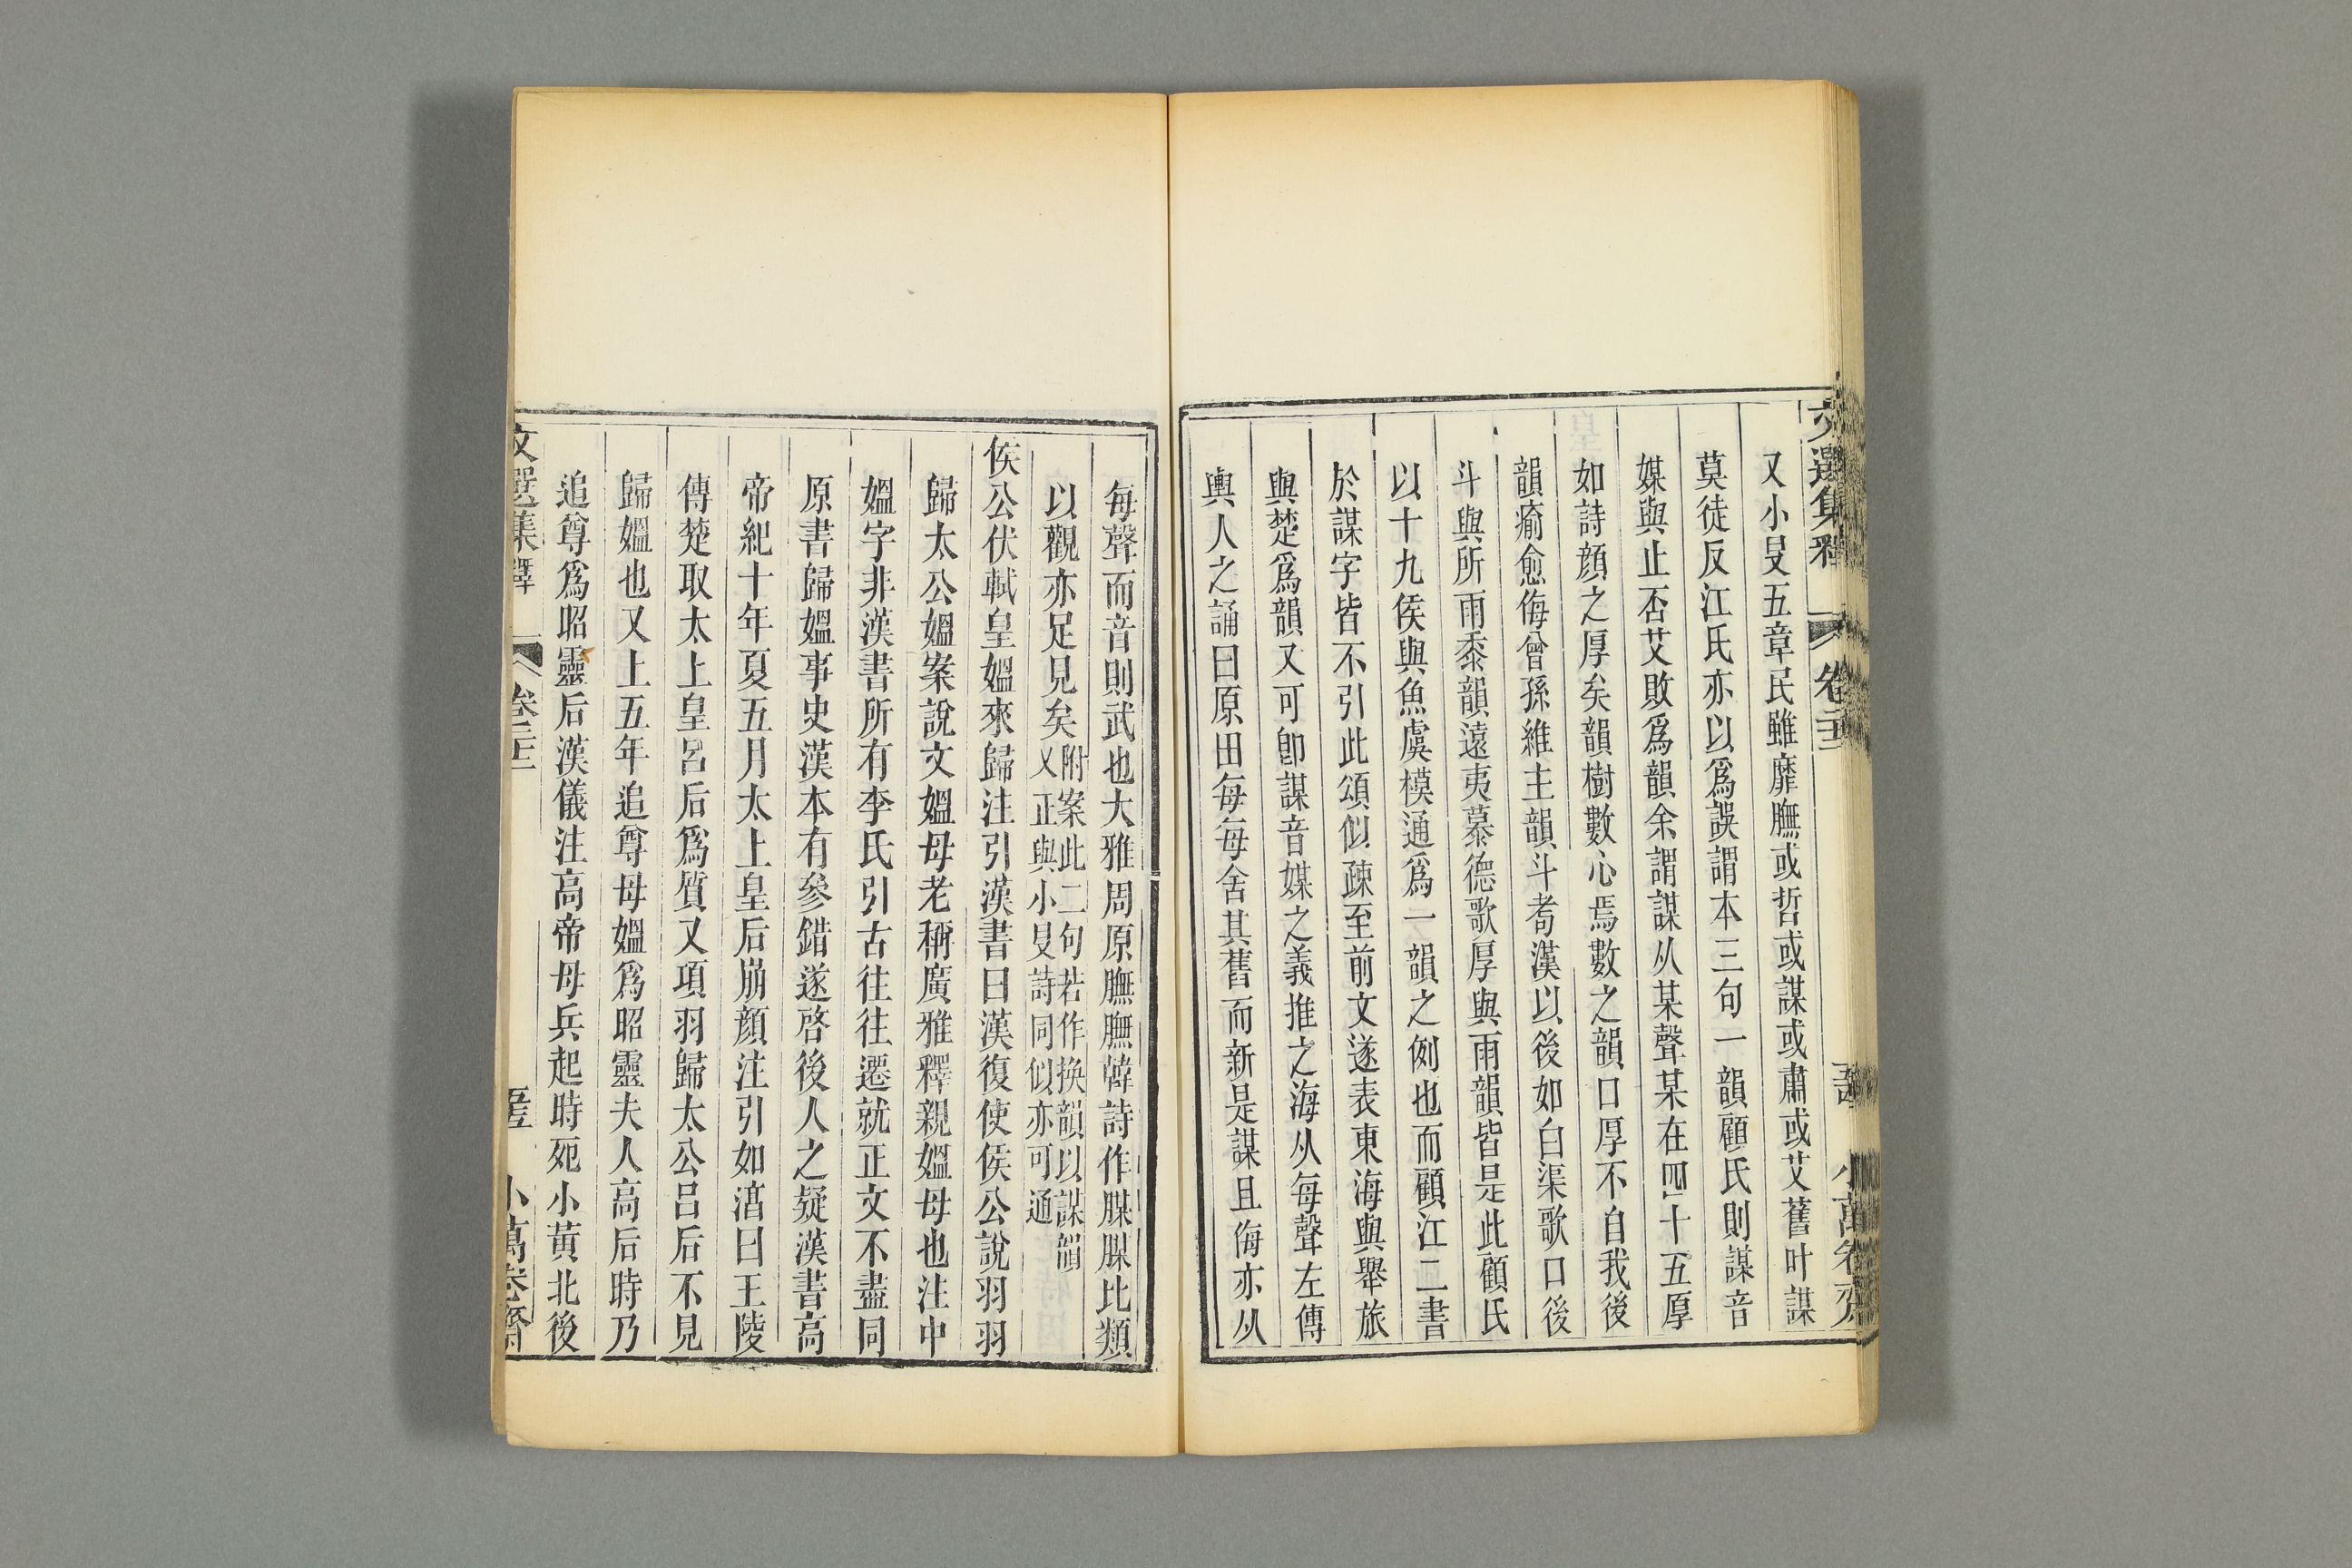 文選集釋 卷二十二 小萬卷齋
又小旻五章民雖靡膴或哲或謀或肅或艾舊叶謀
莫徒反江氏亦以爲誤謂本三句一韻顧氏則謀音
媒與止否艾敗爲韻余謂謀从某聲某在四十五厚
如詩顔之厚矣韻樹數心焉數之韻口厚不自我後
韻瘉愈侮曾孫維主韻斗耇漢以後如白渠歌口後
斗與所雨黍韻遠夷慕德歌厚與雨韻皆是此顧氏
以十九侯與魚虞模通爲一韻之例也而顧江二書
於謀字皆不引此頌似疎至前文遂表東海與舉旅
與楚爲韻又可卽謀音媒之義推之海从每聲左傳
輿人之誦曰原田每每舍其舊而新是謀且侮亦从
每聲而音則武也大雅周原膴膴韓詩作腜腜比類
以觀亦足見矣附案此二句若作換韻以謀韻又正與小旻詩同似亦可通
侯公伏軾皇媼來歸注引漢書曰漢復使侯公說羽羽
歸太公媼案說文媼母老稱廣雅釋親媼母也注中
媼字非漢書所有李氏引古往往遷就正文不盡同
原書歸媼事史漢本有參錯遂啓後人之疑漢書高
帝紀十年夏五月太上皇后崩顔注引如湻曰王陵
傳楚取太上皇呂后爲質又項羽歸太公呂后不見
歸媼也又上五年追尊母媼爲昭靈夫人高后時乃
追尊爲昭靈后漢儀注高帝母兵起時死小黃北後
文選集釋 卷二十二 小萬卷齋